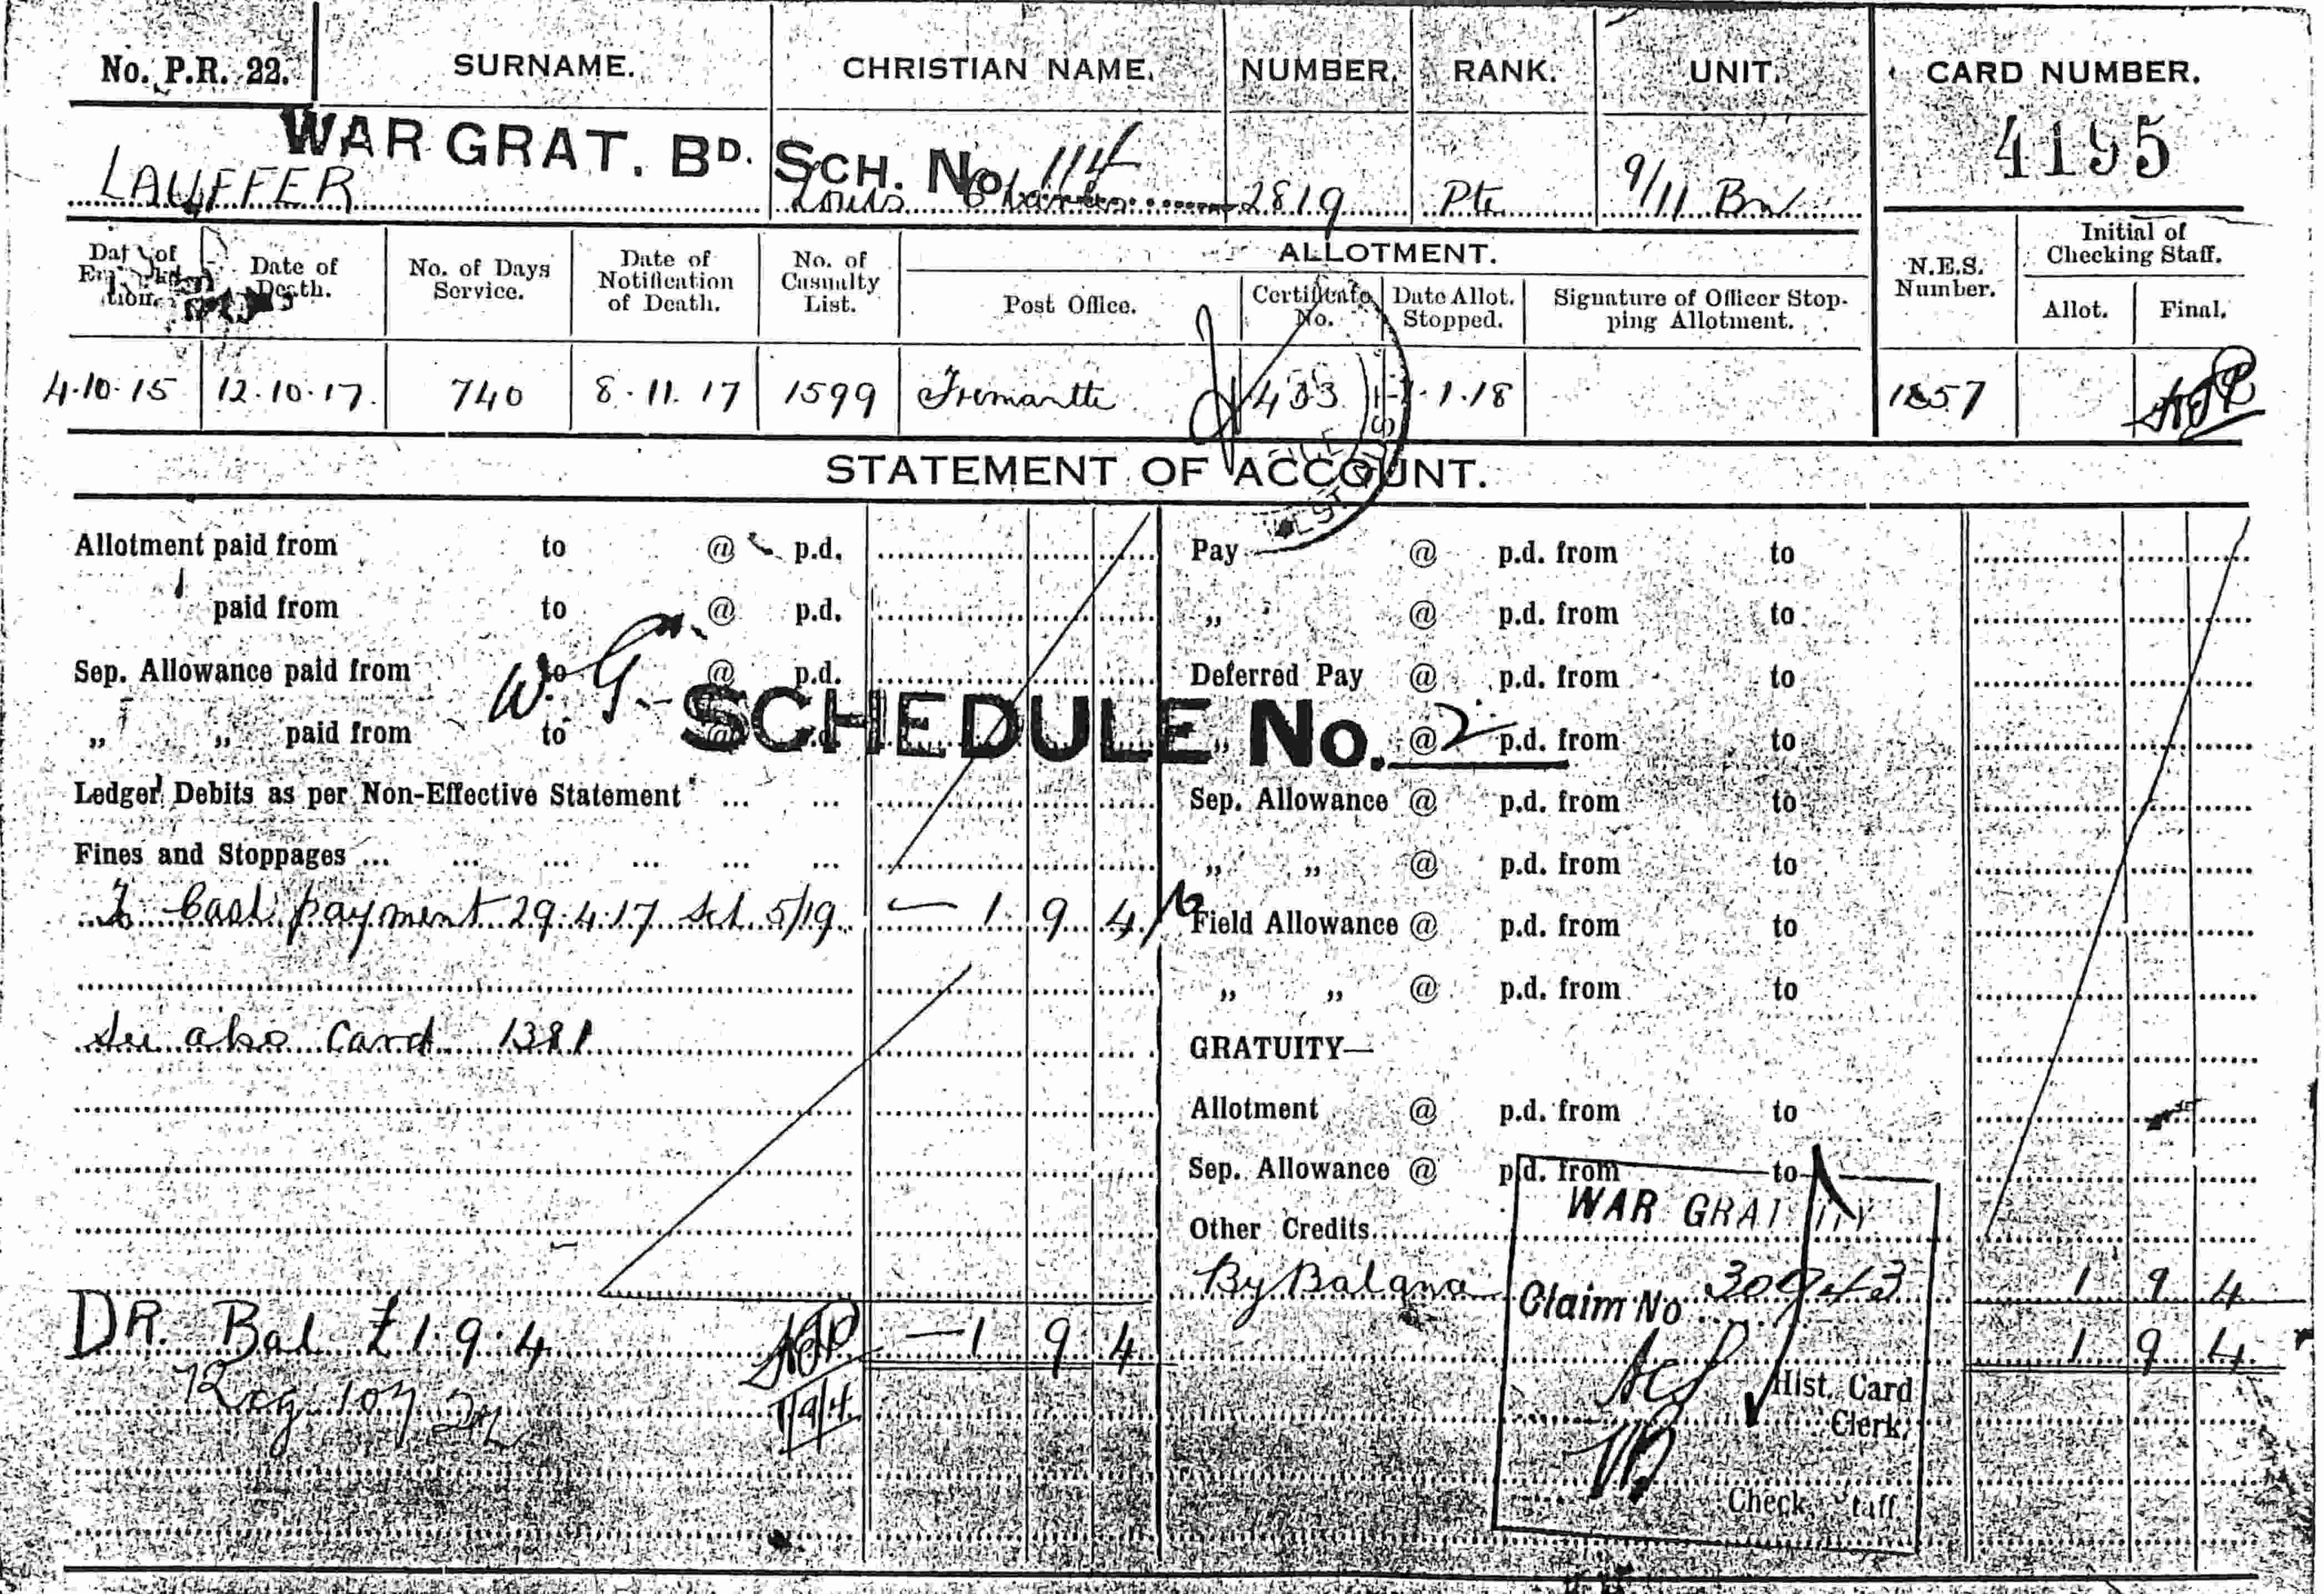 No. P.R. 22. SURNAME. CHRISTIAN NAME. NUMBER. RANK. UNIT. CARD NUMBER.
WAR GRAT. BD. SCH. No. 114
4195
LAUFFER Louis Charles 2819 Pte 9/11 Bn
Date of Death. No. of Days Service. Date of Notification of Death. No. of Casualty List. ALLOTMENT. N.E.S. Number. Initial of Checking Staff.
Post Office. Certificate No. Date Allot. Stopped. Signature of Officer Stopping Allotment. Allot. Final.
4.10.15 12.10.17. 740 8.11.17 1599 Fremantle 433 1.1.18 1857
STATEMENT OF ACCOUNT.
Allotment paid from to @ p.d. Pay @ p.d. from to
paid from to @ p.d. „ @ p.d. from to
Sep. Allowance paid from to @ p.d. Deferred Pay @ p.d. from to
W. G. SCHEDULE No. 2
„ „ paid from to @ p.d. „ @ p.d. from to
Ledger Debits as per Non-Effective Statement ... ... Sep. Allowance @ p.d. from to
Fines and Stoppages ... ... ... ... ... ... „ „ @ p.d. from to
To Cash payment 29.4.17 Sch 5/19 — 1 9 4 Field Allowance @ p.d. from to
„ „ @ p.d. from to
See also Card 1381 GRATUITY—
Allotment @ p.d. from to
Sep. Allowance @ p.d. from to
WAR GRATUITY
Other Credits
By Balance 1 9 4
Claim No 30943
DR. Bal £1.9.4 — 1 9 4 1 9 4
Hist. Card
Clerk.
Check Staff